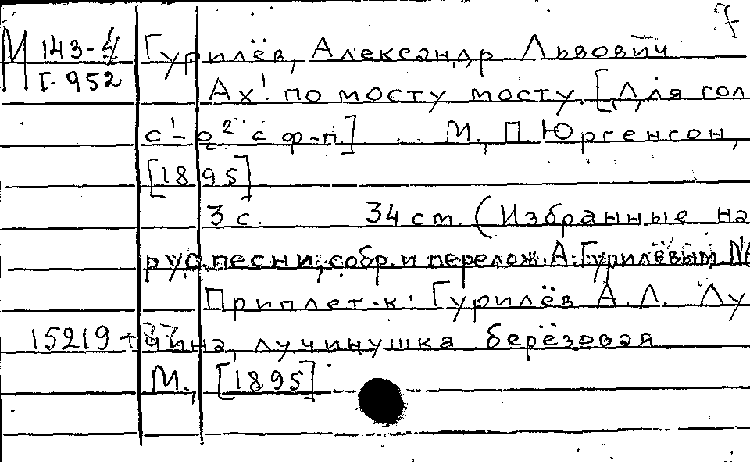 7
М 143-4 Гурилёв, Александр Львович
Г-952 Ах! по мосту мосту. [Для гол
с¹-g² с ф-п] М., П. Юргенсон,
[1895]
3 с. 34 см. (Избранные на
рус песни, собр. и перелож. А. Гурилёвым №
Приплет. к: Гурилёв А.Л. Лу
15219 чина, лучинушка берёзовая
М., [1895]